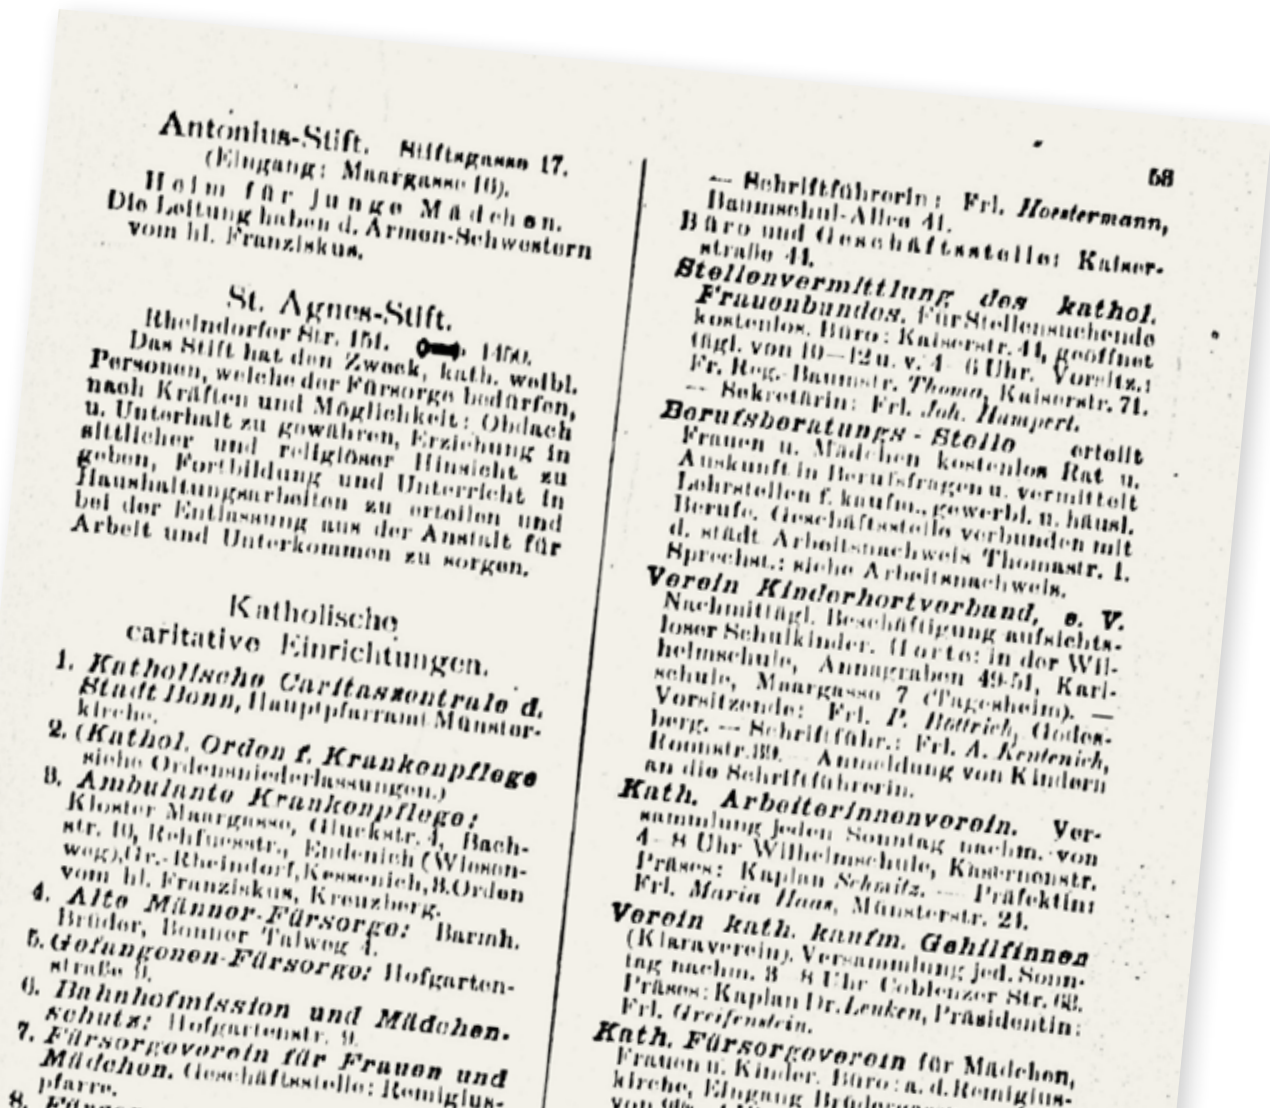 Antonius-Stift. Stiftsgasse 17.
(Eingang: Maargasse 16).
Heim für junge Mädchen.
Die Leitung haben d. Armen-Schwestern
vom hl. Franziskus.
St. Agnes-Stift.
Rheindorfer Str. 151. 1450.
Das Stift hat den Zweck, kath. weibl.
Personen, welche der Fürsorge bedürfen,
nach Kräften und Möglichkeit: Obdach
u. Unterhalt zu gewähren, Erziehung in
sittlicher und religiöser Hinsicht zu
geben, Fortbildung und Unterricht in
Haushaltungsarbeiten zu erteilen und
bei der Entlassung aus der Anstalt für
Arbeit und Unterkommen zu sorgen.
Katholische
caritative Einrichtungen.
1. Katholische Caritaszentrale d.
Stadt Bonn, Hauptpfarramt Münster-
kirche.
2. (Kathol. Orden f. Krankenpflege
siehe Ordensniederlassungen.)
3. Ambulante Krankenpflege:
Kloster Maargasse, Gluckstr. 4, Bach-
str. 10, Rehfuesstr., Endenich (Wiesen-
weg), Gr.-Rheindorf, Kessenich, 3. Orden
vom hl. Franziskus, Kreuzberg.
4. Alte Männer-Fürsorge: Barmh.
Brüder, Bonner Talweg 4.
5. Gefangenen-Fürsorge: Hofgarten-
straße 9.
6. Bahnhofmission und Mädchen-
schutz: Hofgartenstr. 9.
7. Fürsorgeverein für Frauen und
Mädchen. Geschäftsstelle: Remigius-
pfarre.
8.
58
— Schriftführerin: Frl. Hostermann,
Baumschul-Allee 41.
Büro und Geschäftsstelle: Kaiser-
straße 41.
Stellenvermittlung des kathol.
Frauenbundes. Für Stellensuchende
kostenlos. Büro: Kaiserstr. 41, geöffnet
tägl. von 10—12 u. v. 4—6 Uhr. Vorsitz.:
Fr. Reg.-Baumstr. Thoma, Kaiserstr. 71.
— Sekretärin: Frl. Joh. Humpert.
Berufsberatungs-Stelle erteilt
Frauen u. Mädchen kostenlos Rat u.
Auskunft in Berufsfragen u. vermittelt
Lehrstellen f. kaufm., gewerbl. u. häusl.
Berufe. Geschäftsstelle verbunden mit
d. städt. Arbeitsnachweis Thomastr. 1.
Sprechst.: siehe Arbeitsnachweis.
Verein Kinderhortverband, e. V.
Nachmittägl. Beschäftigung aufsichts-
loser Schulkinder. Horte: in der Wil-
helmschule, Annagraben 49-51, Karl-
schule, Maargasse 7 (Tagesheim). —
Vorsitzende: Frl. P. Böttrich, Godes-
berg. — Schriftführ.: Frl. A. Kentenich,
Roonstr. Anmeldung von Kindern
an die Schriftführerin.
Kath. Arbeiterinnenverein. Ver-
sammlung jeden Sonntag nachm. von
4—8 Uhr Wilhelmschule, Kasernenstr.
Präses: Kaplan Schmitz. — Präfektin:
Frl. Maria Haas, Münsterstr. 21.
Verein kath. kaufm. Gehilfinnen
(Klaraverein). Versammlung jed. Sonn-
tag nachm. 3—8 Uhr Coblenzer Str.
Präses: Kaplan Dr. Lenken, Präsidentin:
Frl. Greifenstein.
Kath. Fürsorgeverein für Mädchen,
Frauen u. Kinder. Büro: a. d. Remigius-
kirche, Eingang